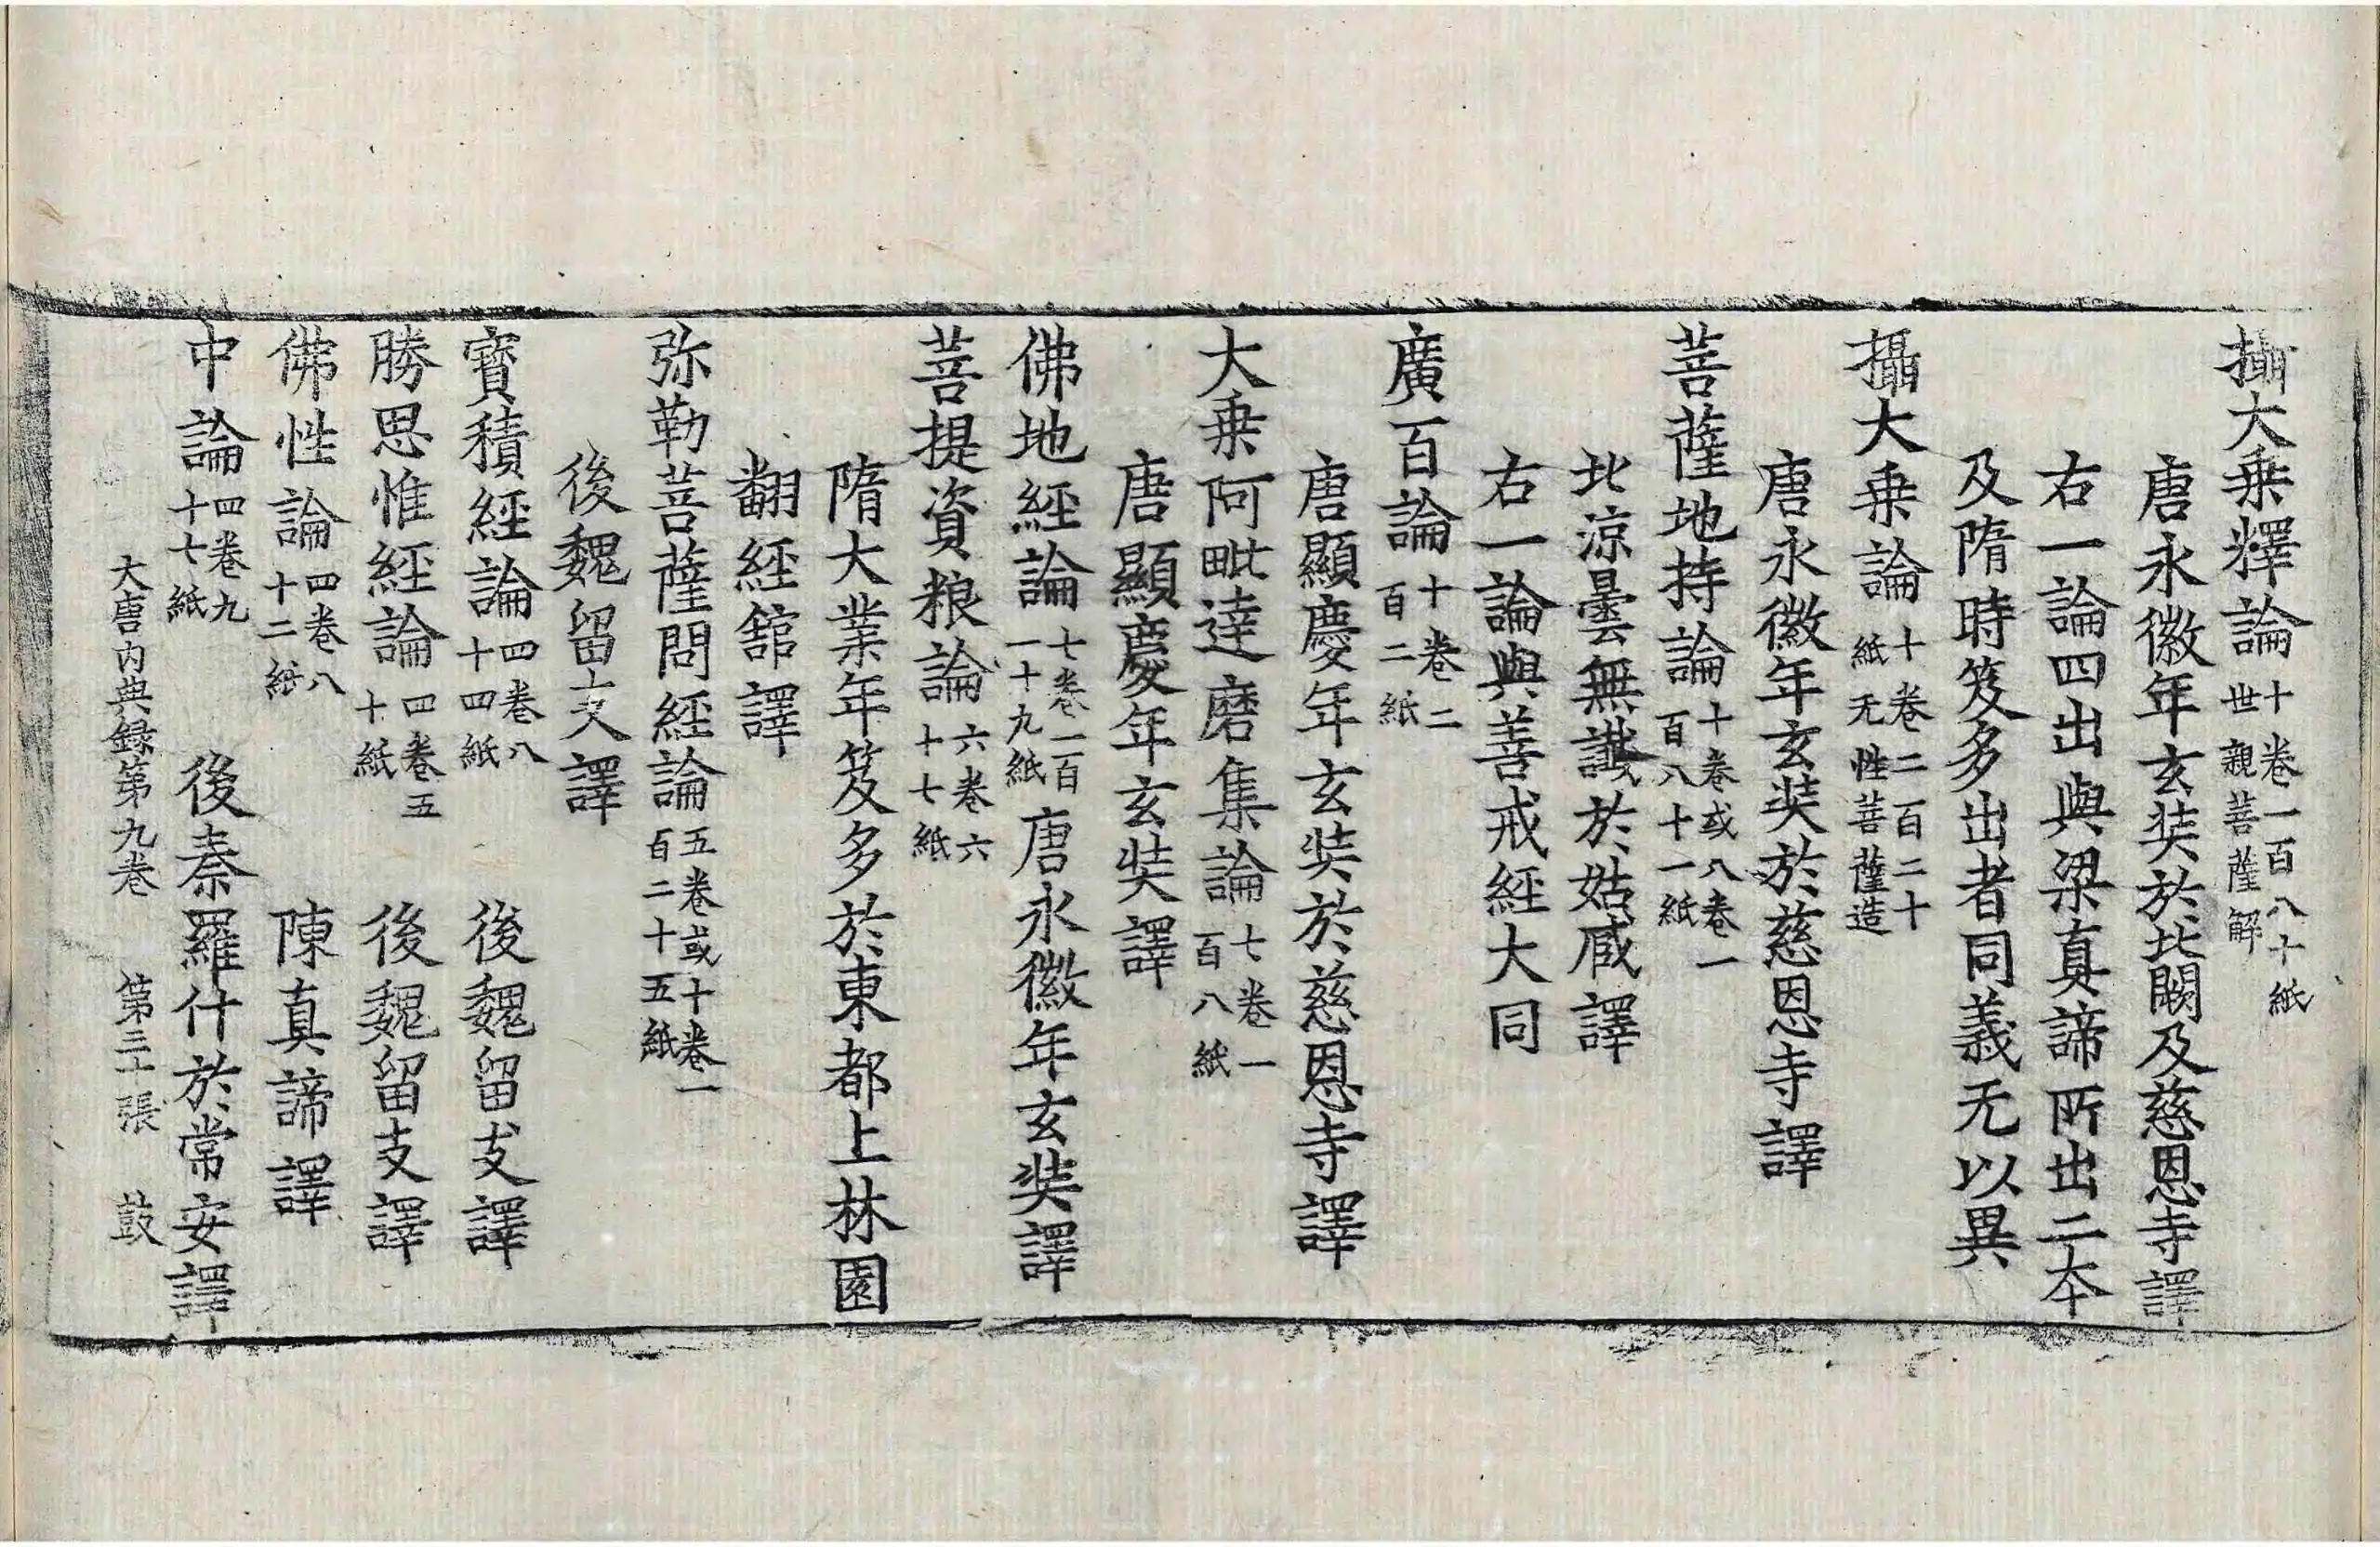 攝大乗釋論十卷一百八十紙世親菩薩解
唐永徽年玄奘於北闕及慈恩寺譯
右一論四出與梁真諦所出二本
及隋時笈多出者同義无以異
攝大乗論十卷二百二十紙无性菩薩造
唐永徽年玄奘於慈恩寺譯
菩薩地持論十卷或八卷一百八十一紙
北涼曇無讖於姑臧譯
右一論與善戒經大同
廣百論十卷二百二紙
唐顯慶年玄奘於慈恩寺譯
大乗阿毗達磨集論七卷一百八紙
唐顯慶年玄奘譯
佛地經論七卷一百一十九紙唐永徽年玄奘譯
菩提資粮論六卷六十七紙
隋大業年笈多於東都上林園
翻經舘譯
弥勒菩薩問經論五卷或十卷一百二十五紙
後魏留支譯
寶積經論四卷八十四紙後魏留支譯
勝思惟經論四卷五十紙後魏留支譯
佛性論四卷八十二紙陳真諦譯
中論四卷九十七紙後秦羅什於常安譯
大唐内典録第九卷 第三十張 鼓